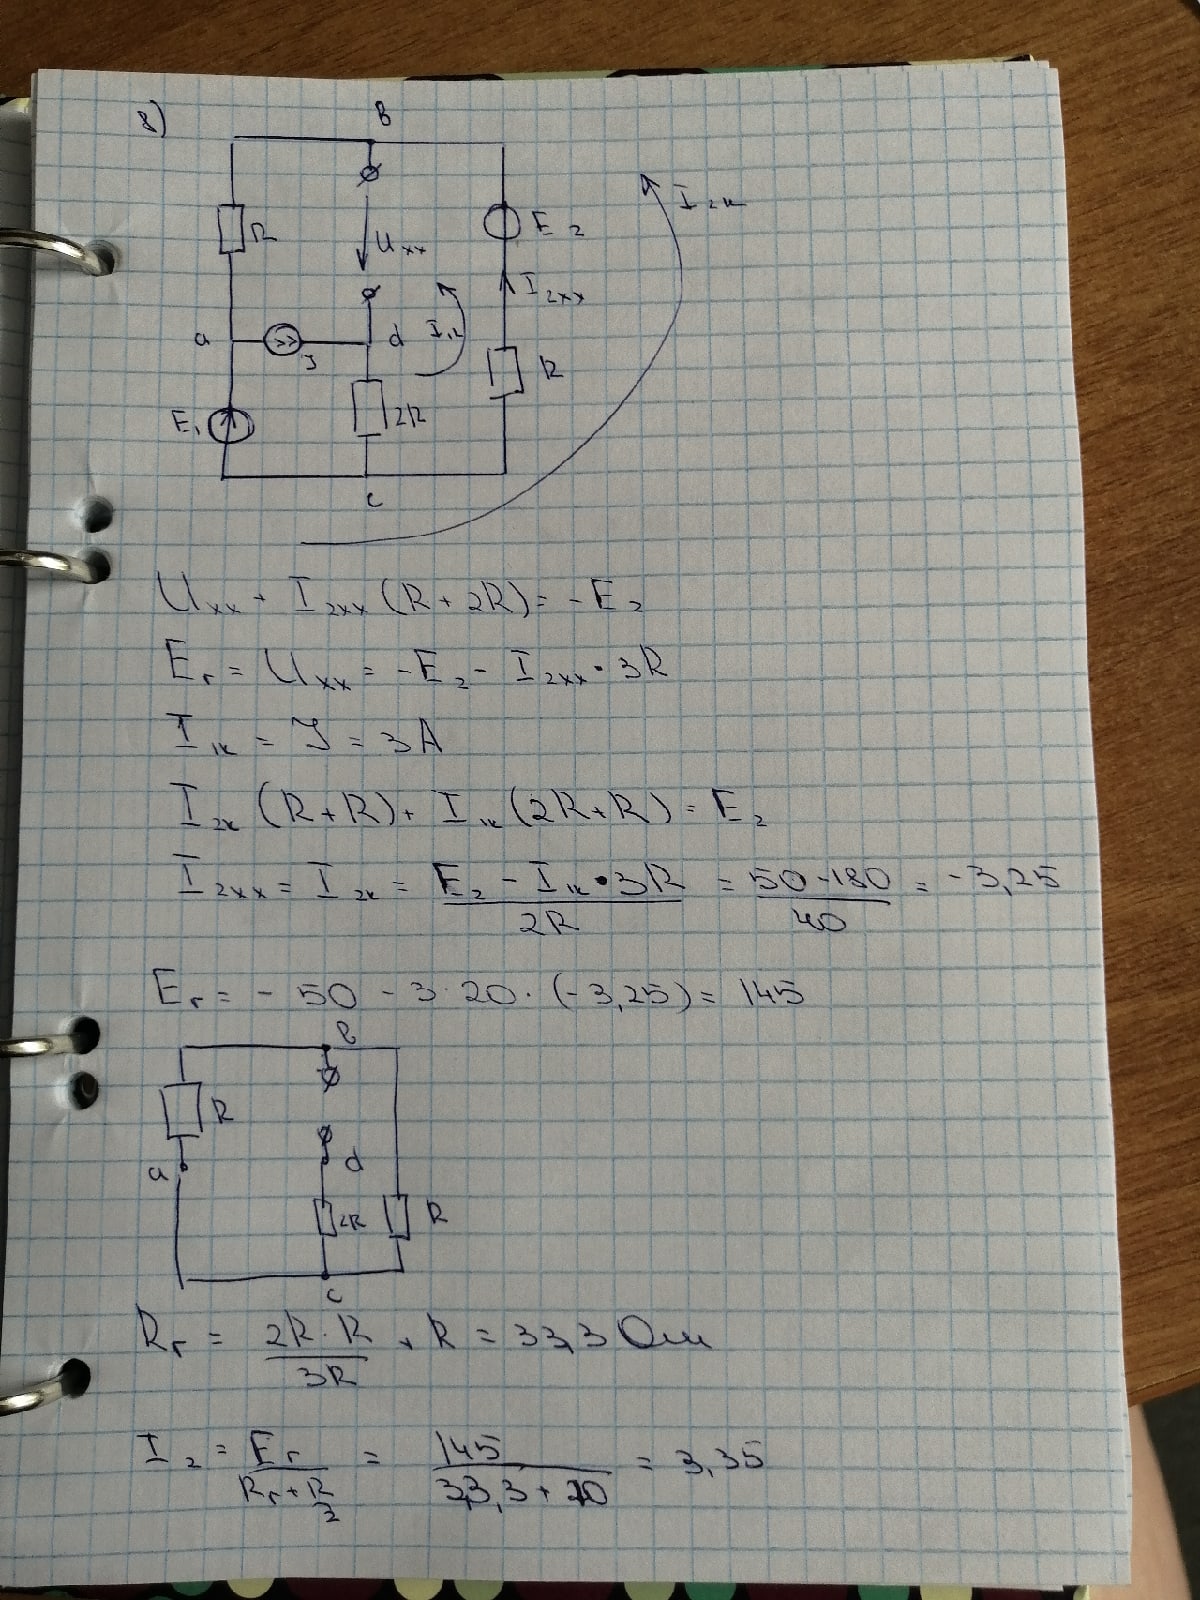 8)
B
R
Uхх
E2
I2к
I2хх
a
J
d
I1к
R
E1
2R
c
Uхх + I2хх (R + 2R) = -E2
Eг = Uхх = -E2 - I2хх · 3R
I1к = J = 3A
I2к (R+R) + I1к (2R+R) = E2
I2хх = I2к = (E2 - I1к · 3R)/2R = (50-180)/40 = -3,25
Eг = - 50 - 3·20·(-3,25) = 145
B
R
a
d
2R
R
c
Rг = (2R·R)/3R + R = 33,3 Ом
I2 = Eг/(Rг + R/2) = 145/(33,3 + 10) = 3,35